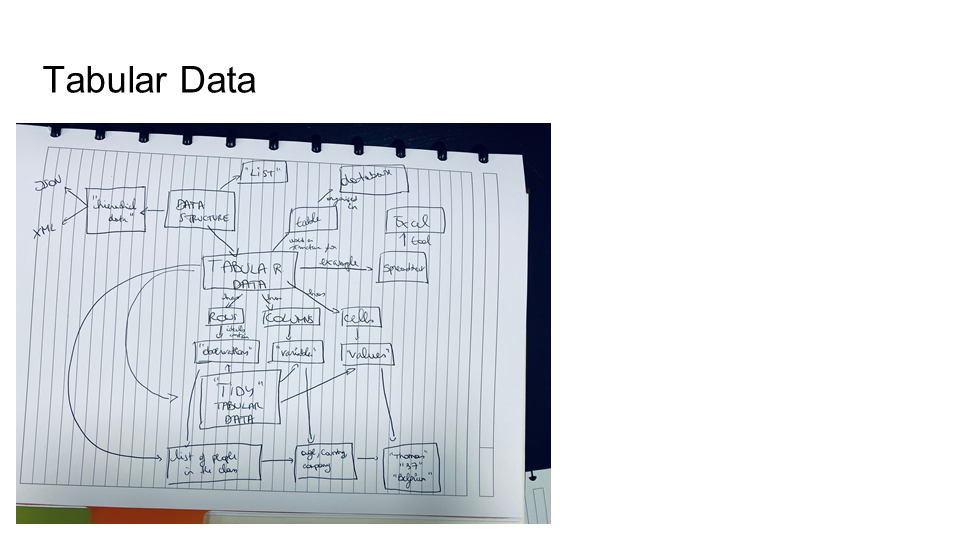 Tabular Data
"LIST"
database
JSON
"hierarchical
data"
DATA
STRUCTURE
organised
in
table
Excel
XML
used as
structure for
tool
TABULAR
DATA
example
Spreadsheet
has
has
has
ROWS
COLUMNS
cells
ideally
contain
"observations"
"variable"
"values"
"TIDY"
TABULAR
DATA
list of people
in the class
age, country,
company
"Thomas"
"37"
"Belgium"